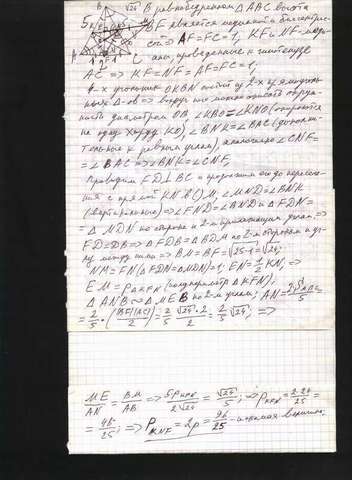 5. В равнобедренном △ABC высота
BF является медианой и биссектри-
сой ⇒ AF=FC=1, KF и NF - меди-
аны, проведенные к гипотенузе
AC ⇒ KF=NF=AF=FC=1;
4-х угольник OKBN состоит из 2-х прямоуголь-
ных △-ов ⇒ вокруг них можно описать окруж-
ность диаметром OB, ∠KBO=∠KNO (опираются
на одну хорду KO), ∠BNK=∠BAC (дополни-
тельные к равным углам), аналогично ∠CNF=
=∠BAC ⇒ ∠BNK=∠CNF,
Проводим FD⊥BC и продолжим его до пересече-
ния с прямой KN в () M, ∠MND=∠BNK
(вертикальные) ⇒ ∠FND=∠MND и △FDN=
=△MDN по стороне и 2-м прилежащим углам ⇒
FD=DB ⇒ △FDB=△BDM по 2-м сторонам и уг-
лу между ними ⇒ BM=BF=√25-1=√24;
NM=FN (△FDN=△MDN)=1; EN=1/2 KN; ⇒
EM=p△KFN (полупериметр △KFN);
△ANB∾△MEB по 2-м углам; AN=2S△ABC/5
=2/5·(|BF||AC|/2)=2/5·√24·2/2=2/5√24; ⇒
ME/AN=BM/AB ⇒ 5p△KNF/2√24=√24/5; ⇒ p△KNF=2·24/25=
=48/25; ⇒ P△KNF=2p=96/25 - искомая величина.